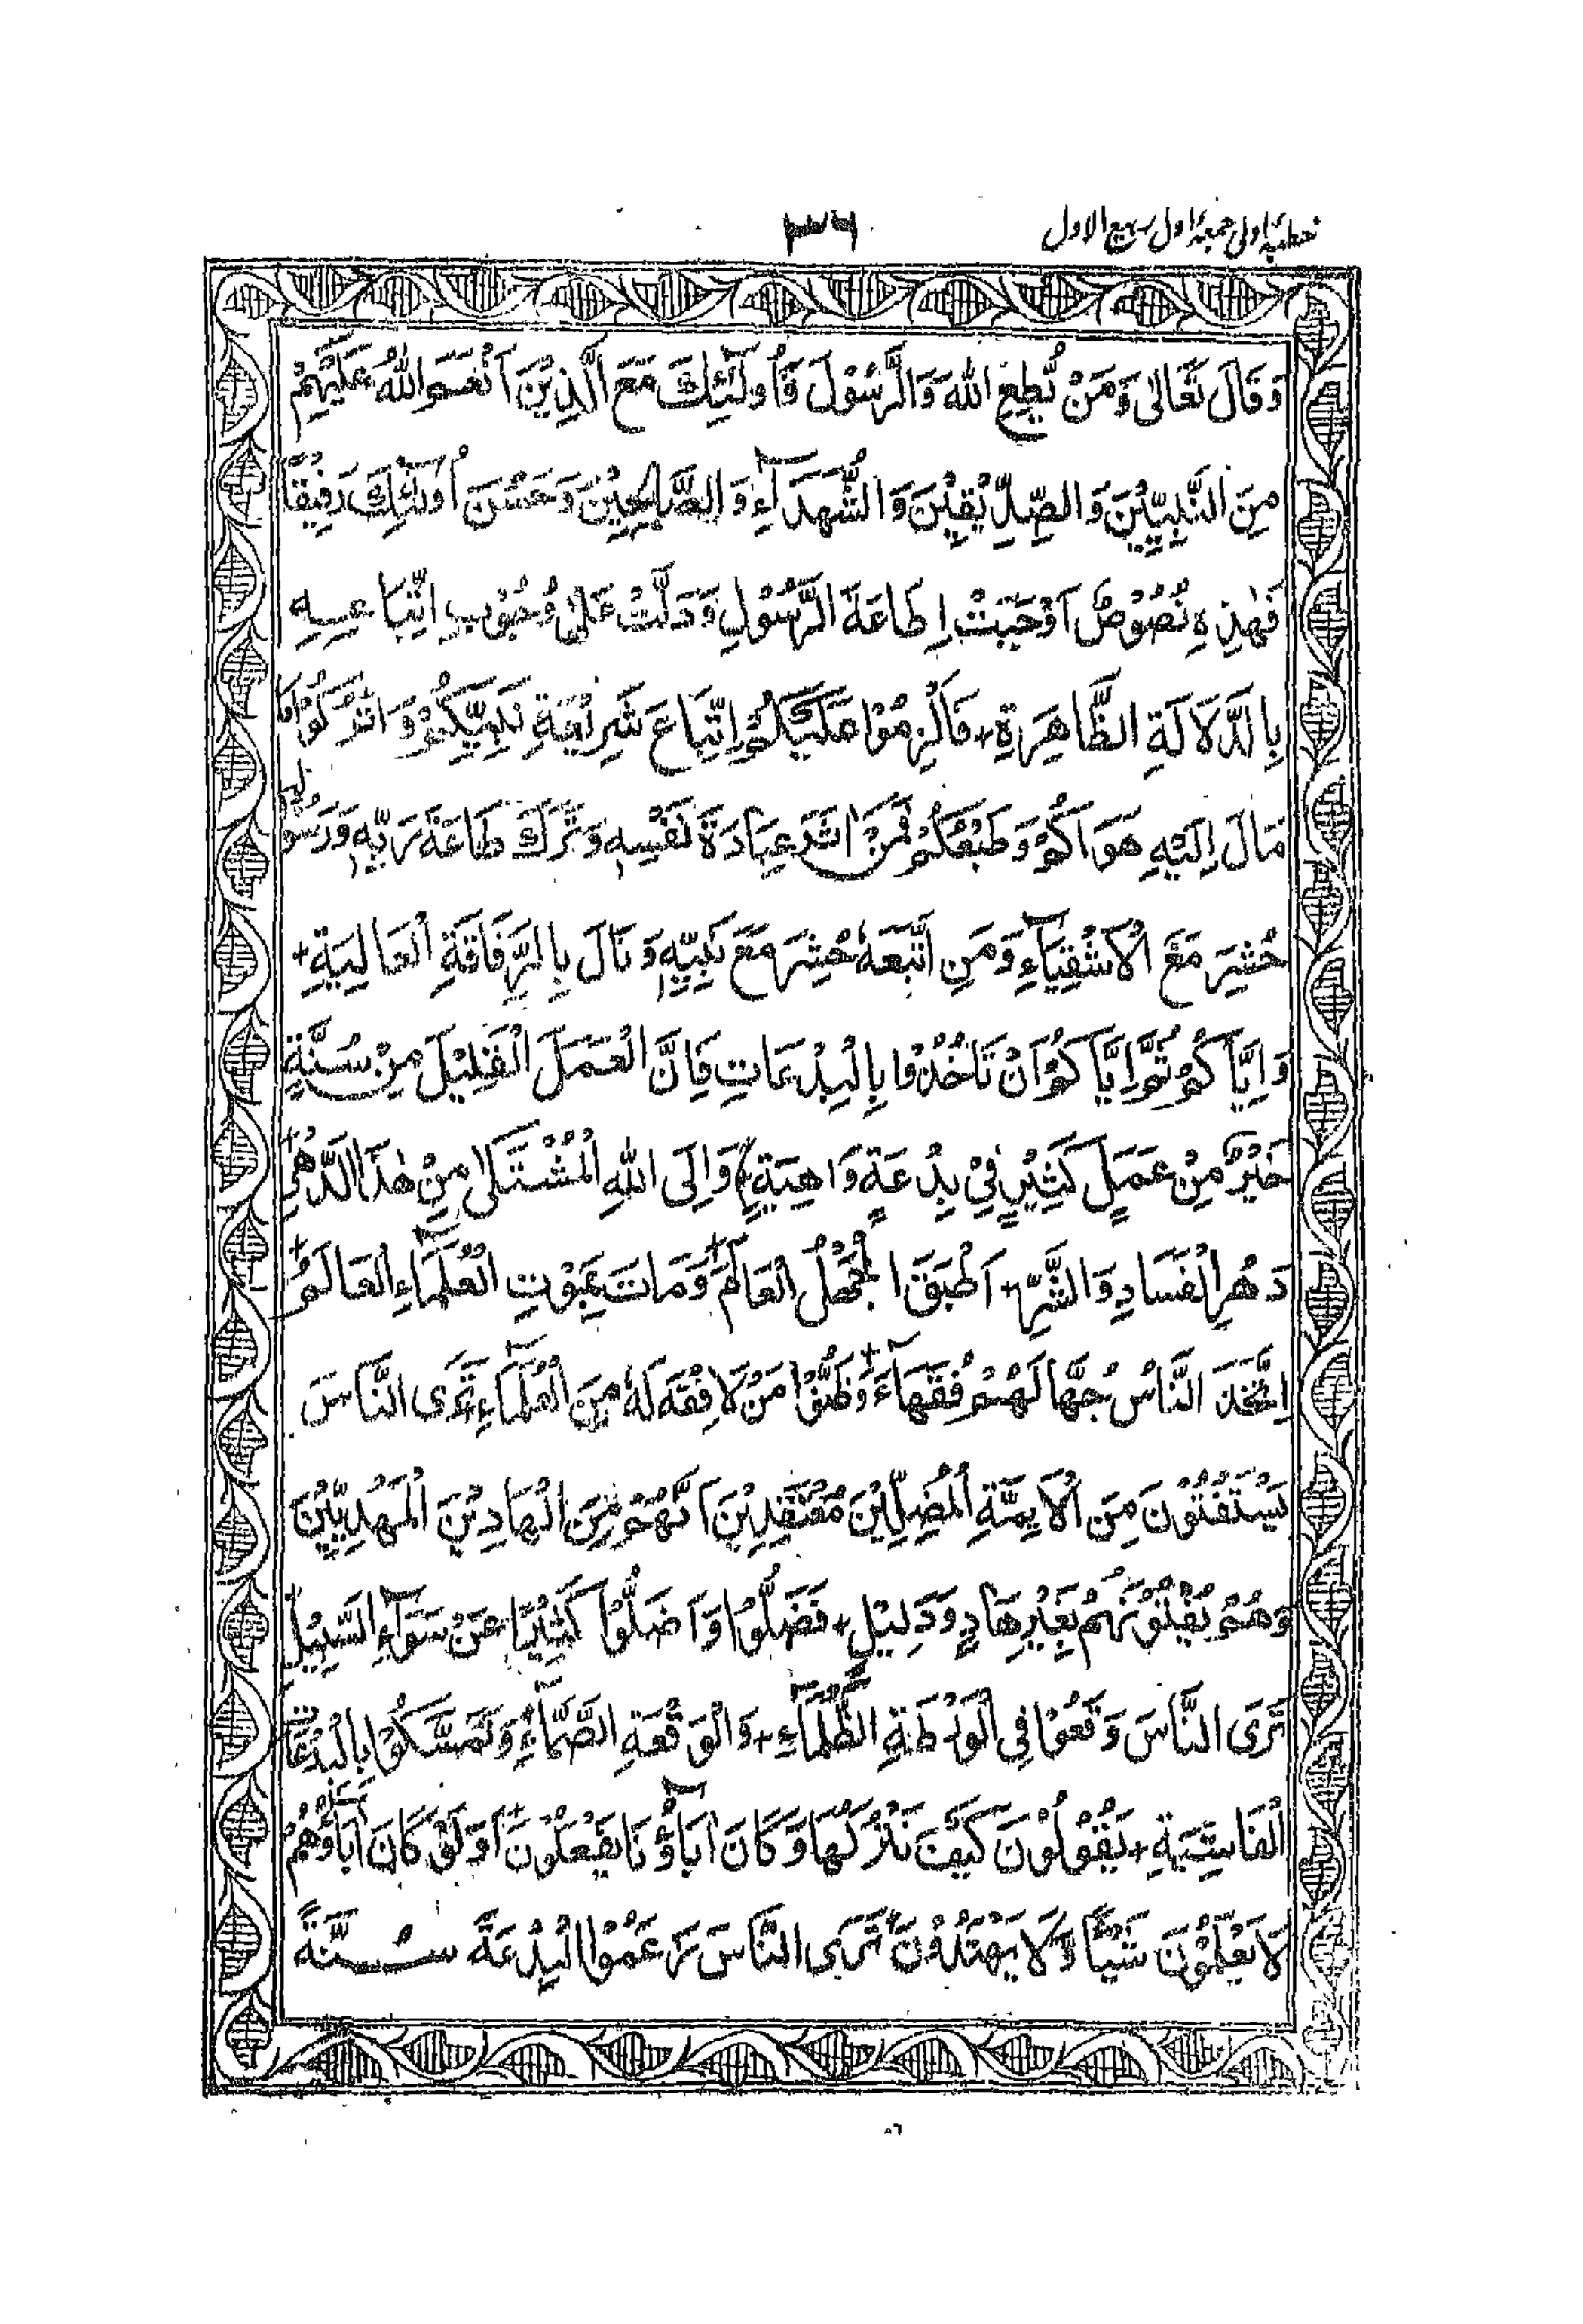 خطبۂ اولی جمعۂ اول ربیع الاول
۳۳۶
وَقَالَ تَعَالٰى وَمَنْ يُّطِعِ اللهَ وَالرَّسُوْلَ فَاُولٰٓئِكَ مَعَ الَّذِيْنَ اَنْعَمَ اللهُ عَلَيْهِمْ
مِنَ النَّبِيِّيْنَ وَالصِّدِّيْقِيْنَ وَالشُّهَدَآءِ وَالصّٰلِحِيْنَ وَحَسُنَ اُولٰٓئِكَ رَفِيْقًا
فَهٰذِهِ نُصُوْصٌ اَوْجَبَتْ اِطَاعَةَ الرَّسُوْلِ وَدَلَّتْ عَلٰى وُجُوْبِ اِتِّبَاعِهٖ
بِالدَّلَالَةِ الظَّاهِرَةِ + فَالْزِمُوْا عَلَيْكُمْ اِتِّبَاعَ شَرِيْعَةِ نَبِيِّكُمْ وَاتْرُكُوْا مَا
مَالَ اِلَيْهِ هَوَاكُمْ وَطَبْعُكُمْ فَمَنْ اٰثَرَ عِبَادَةَ نَفْسِهٖ وَتَرَكَ طَاعَةَ رَبِّهٖ وَرَسُوْلِهٖ
حُشِرَ مَعَ الْاَشْقِيَآءِ وَمَنِ اتَّبَعَهٗ حُشِرَ مَعَ نَبِيِّهٖ وَنَالَ بِالرِّفَاقَةِ الْعَالِيَةِ +
وَاِيَّاكُمْ ثُمَّ اِيَّاكُمْ اَنْ تَاْخُذُوْا بِالْبِدْعَاتِ فَاِنَّ الْعَمَلَ الْقَلِيْلَ مِنْ سُنَّةٍ
خَيْرٌ مِّنْ عَمَلٍ كَثِيْرٍ فِيْ بِدْعَةٍ وَاهِيَةٍ + وَاِلَى اللهِ الْمُشْتَكٰى مِنْ هٰذَا الدَّهْرِ +
دَهْرِ الْفَسَادِ وَالشَّرِّ + اَطْبَقَ الْجَهْلُ الْعَالَمَ + وَمَاتَ بِمَوْتِ الْعُلَمَآءِ الْعَالَمُ +
اِتَّخَذَ النَّاسُ جُهَّالَهُمْ فُقَهَآءَ + وَظَنُّوْا مَنْ لَا فِقْهَ لَهٗ مِنَ الْعُلَمَآءِ تَرَى النَّاسَ
يَسْتَفْتُوْنَ مِنَ الْاَئِمَّةِ الْمُضِلِّيْنَ مُعْتَقِدِيْنَ اَنَّهُمْ مِنَ الْهَادِيْنَ الْمَهْدِيِّيْنَ
وَهُمْ يُفْتُوْنَهُمْ بِغَيْرِ هَادٍ وَدَلِيْلٍ + فَضَلُّوْا وَاَضَلُّوْا كَثِيْرًا عَنْ سَوَآءِ السَّبِيْلِ +
تَرَى النَّاسَ وَقَعُوْا فِي الْوَرْطَةِ الظَّلْمَآءِ + وَالْوَقْعَةِ الصَّمَّآءِ وَتَمَسَّكُوْا بِالْبِدْعَةِ
الْفَاشِيَةِ + يَقُوْلُوْنَ كَيْفَ نَتْرُكُهَا وَكَانَ اٰبَآؤُنَا يَفْعَلُوْنَ + اَوَلَوْ كَانَ اٰبَآؤُهُمْ
لَا يَعْلَمُوْنَ شَيْئًا وَّلَا يَهْتَدُوْنَ تَرَى النَّاسَ زَعَمُوا الْبِدْعَةَ سُنَّةً